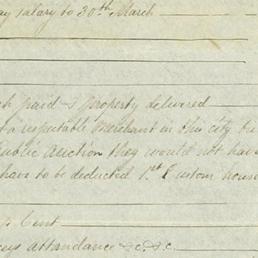 ay salary to 30th March
sh paid & property delivered
t a reputable Merchant in this city
Public auction they would not have
have to be deducted 1st Custom house
p Cent
eys attendance &c. &c.